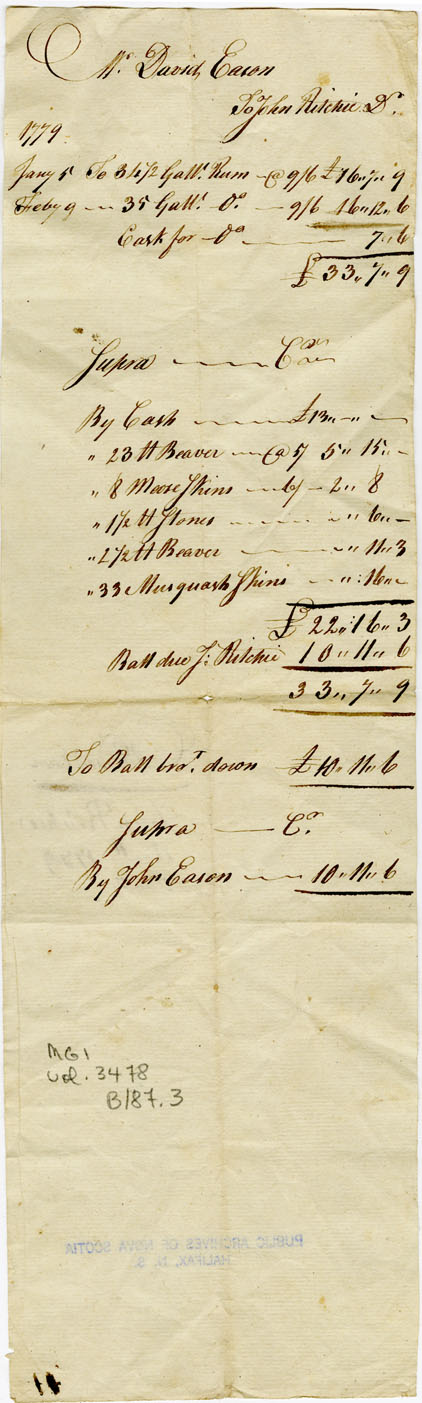 Mr. David Eason
To John Ritchie Dr.
1779
Jany 5 To 34 1/2 Galls. Rum — @ 9/6 £16,,7,,9
Feby 9 — 35 Galls. Do. — 9/6 16,,12,,6
Cask for — Do — 7,,6
£ 33,,7,,9
Supra — Cr.
By Cash — £13,,—,,—
,, 23 lb Beaver — @ 5/ 5,,15,,—
,, 8 Moose Skins — 6/ — 2,,8
,, 1 1/2 lb Stones — ,,6,,—
,, 2 1/2 lb Beaver — ,,11,,3
,, 33 Musquash Skins — ,,16,,—
£ 22,,16,,3
Ball due J: Ritchie 10,,11,,6
33,,7,,9
To Ball brot. down — £10,,11,,6
Supra — Cr.
By John Eason — 10,,11,,6
MG1
vol. 3478
B/87.3
PUBLIC ARCHIVES OF NOVA SCOTIA
HALIFAX, N. S.